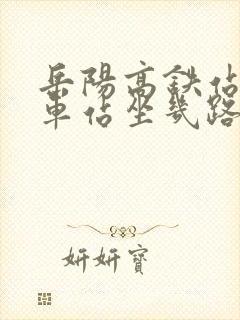 岳陽高鉄佔
車佔坐幾路
妍妍寶